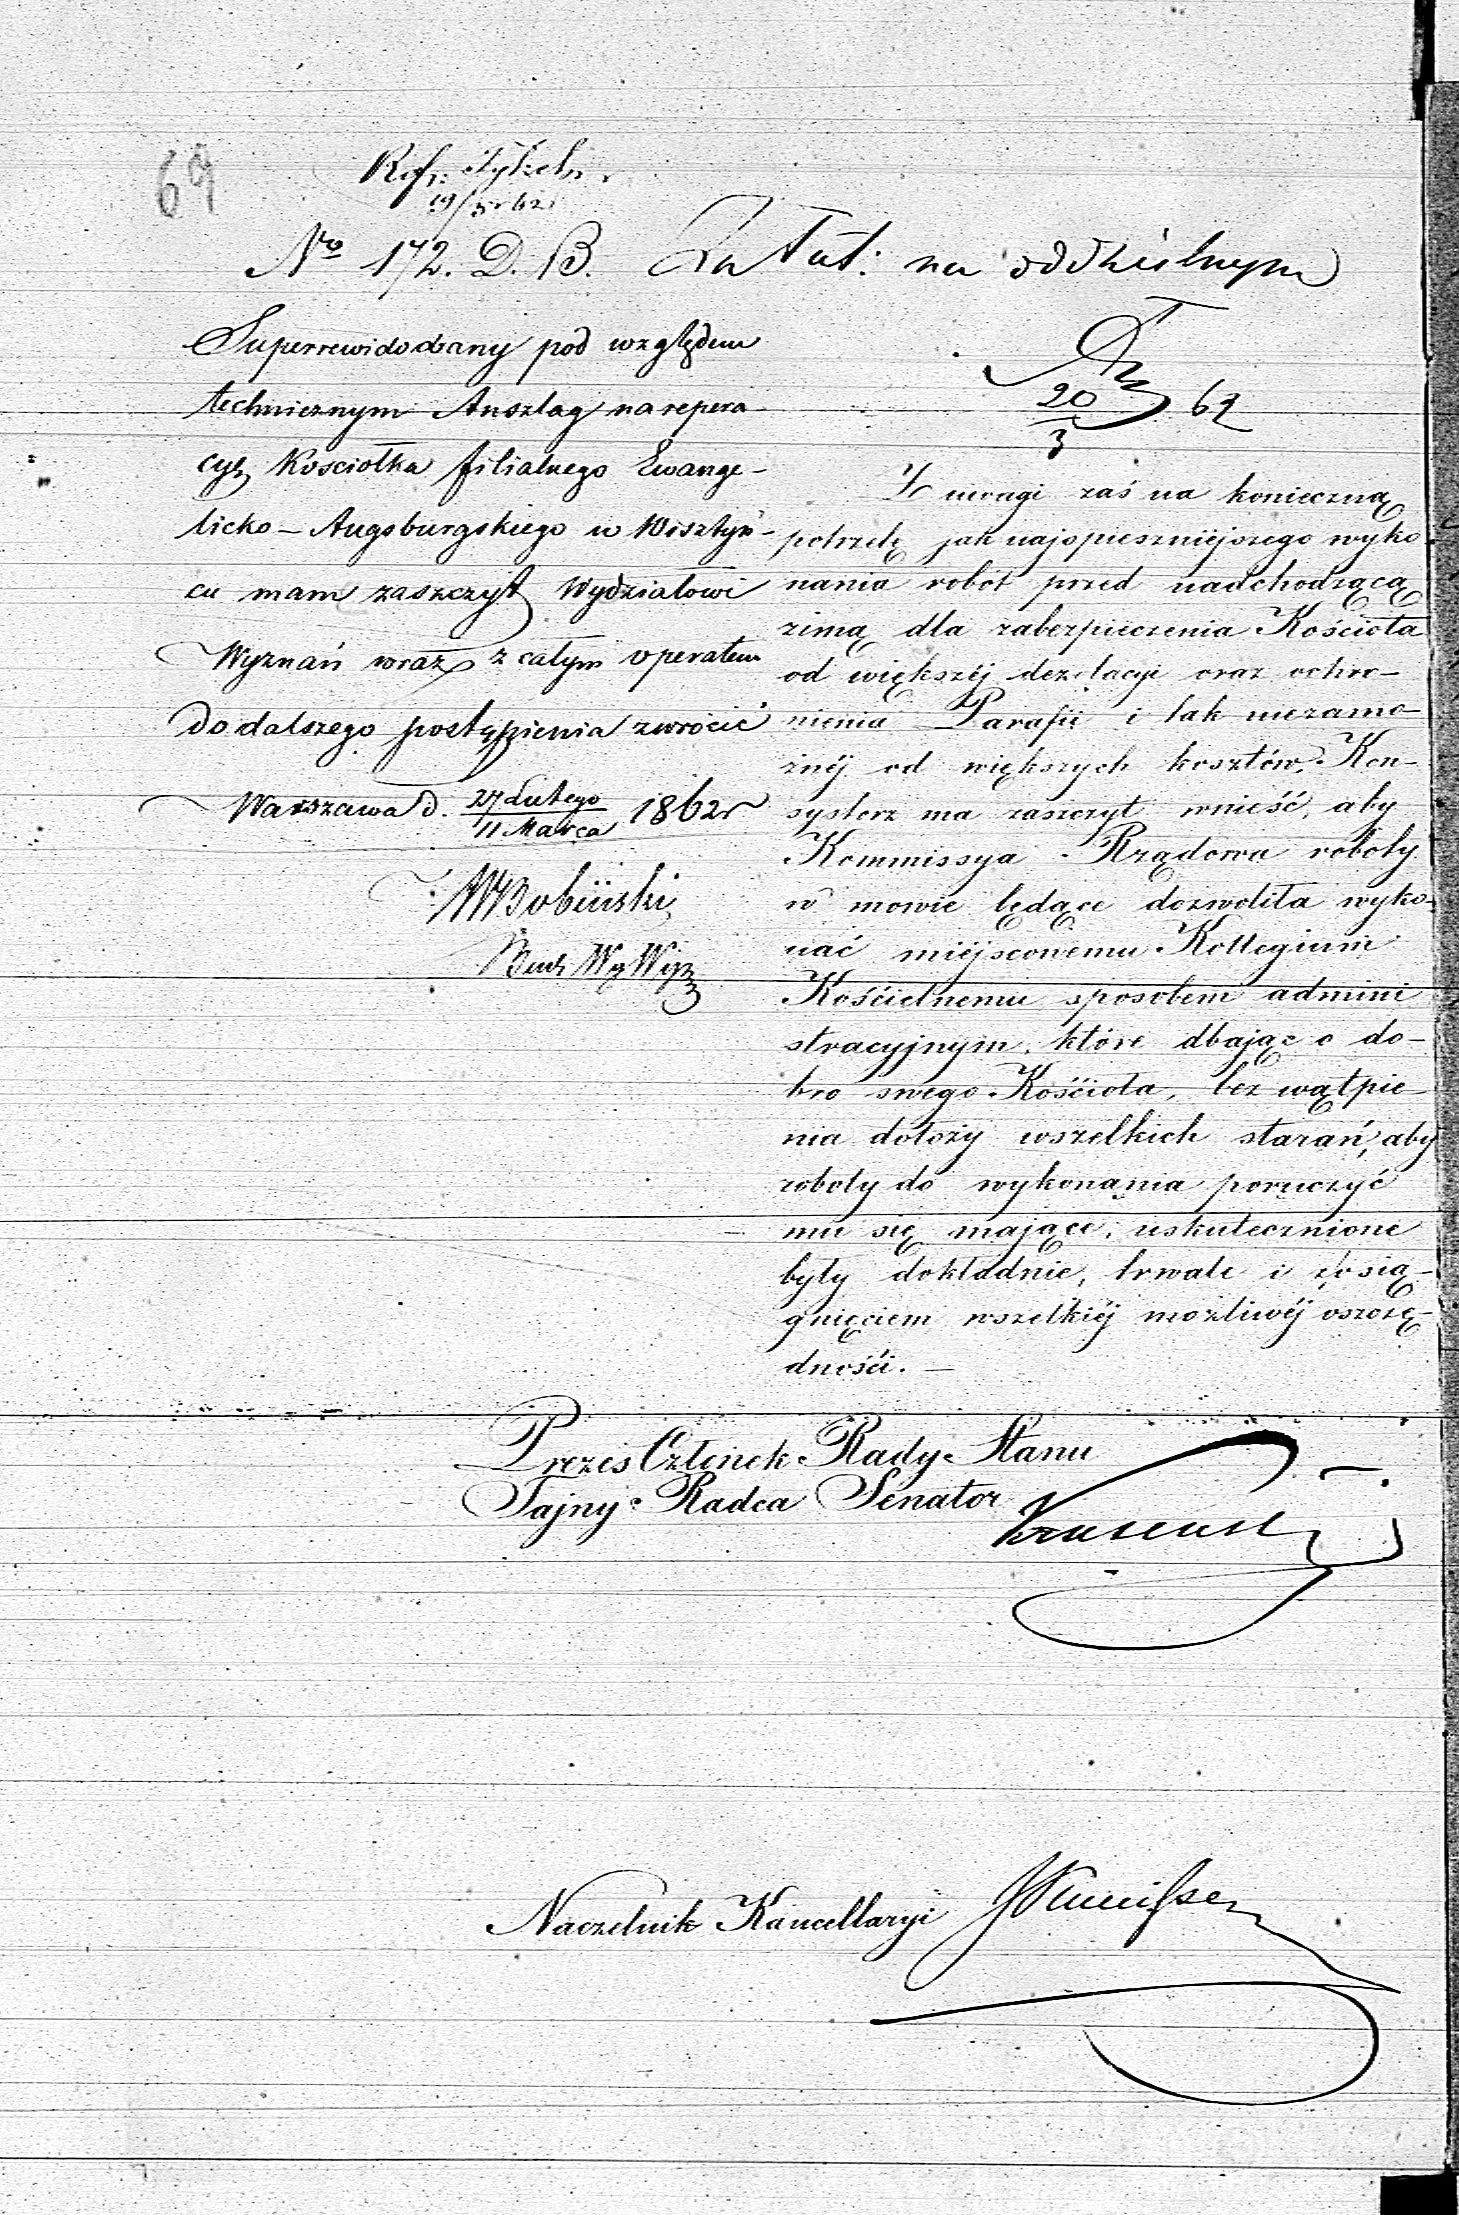 69
Ref: Tykel
19/3 62
No 172. D. B.
Zał tut: na oddzielnym
Superrewidowany pod względem
technicznym Anszlag na repera
cyę Kosciołka filialnego Ewange-
licko-Augsburgskiego w Wisztyń-
cu mam zaszczyt Wydziałowi
Wyznań wraz z całym operatem
do dalszego postąpienia zwrócić
Warszawa d. 27 Lutego / 11 Marca 1862r
20/3 62
Z uwagi zaś na konieczną
potrzebę jak najspieszniéjszego wyko-
nania robót przed nadchodzącą
zimą dla zabezpieczenia Kościoła
od większéj dezolacyi oraz ochro-
nienia Parafii i tak niezamo-
żnéj od większych kosztów, Kon-
systorz ma zaszczyt wnieść, aby
Kommissya Rządowa roboty
w mowie będące dozwoliła wyko-
nać miéjscowemu Kollegium
Kościelnemu sposobem admini
stracyjnym, które dbając o do-
bro swego Kościoła, bez wątpie-
nia dołoży wszelkich starań, aby
roboty do wykonania poruczyć
mu się mające, uskutecznione
były dokładnie, trwale i z osią-
gnięciem wszelkiéj możliwéj oszczę-
dności. —
Prezes Członek Rady Stanu
Tajny Radca Senator
Naczelnik Kancellaryi